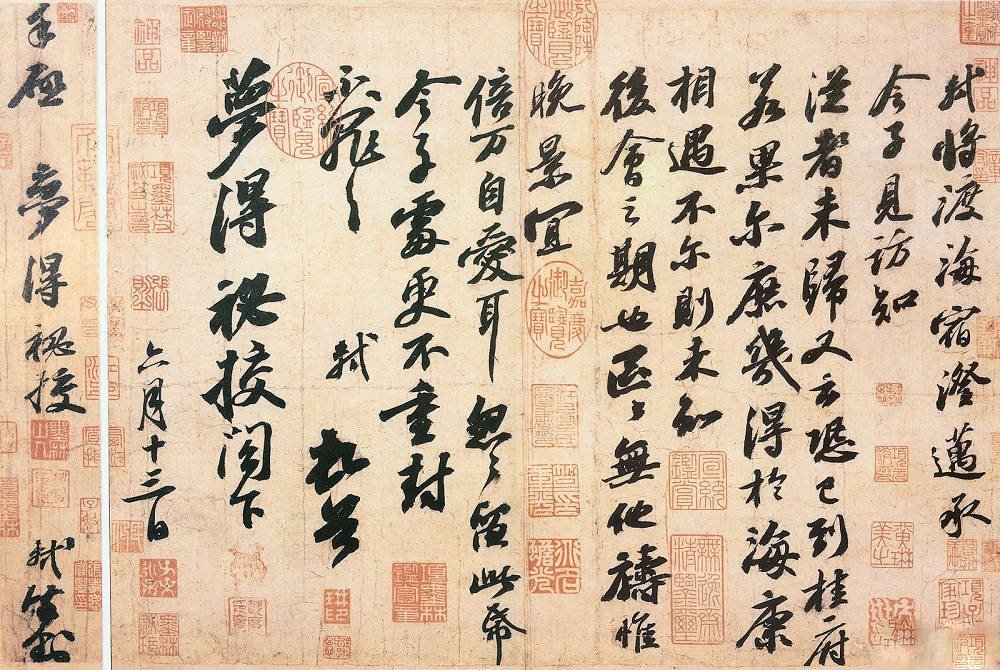 軾將渡海宿澄邁承
令子見訪知
從者未歸又云恐已到桂府
若果尔庶幾得於海康
相遇不尔則未知
後會之期也區〻無他禱惟
晚景宜
倍万自愛耳忽〻留此帋
令子處更不重封
不罪〻 軾 頓首
夢得祕校閣下
六月十三日
手啓 夢得祕校 軾謹封